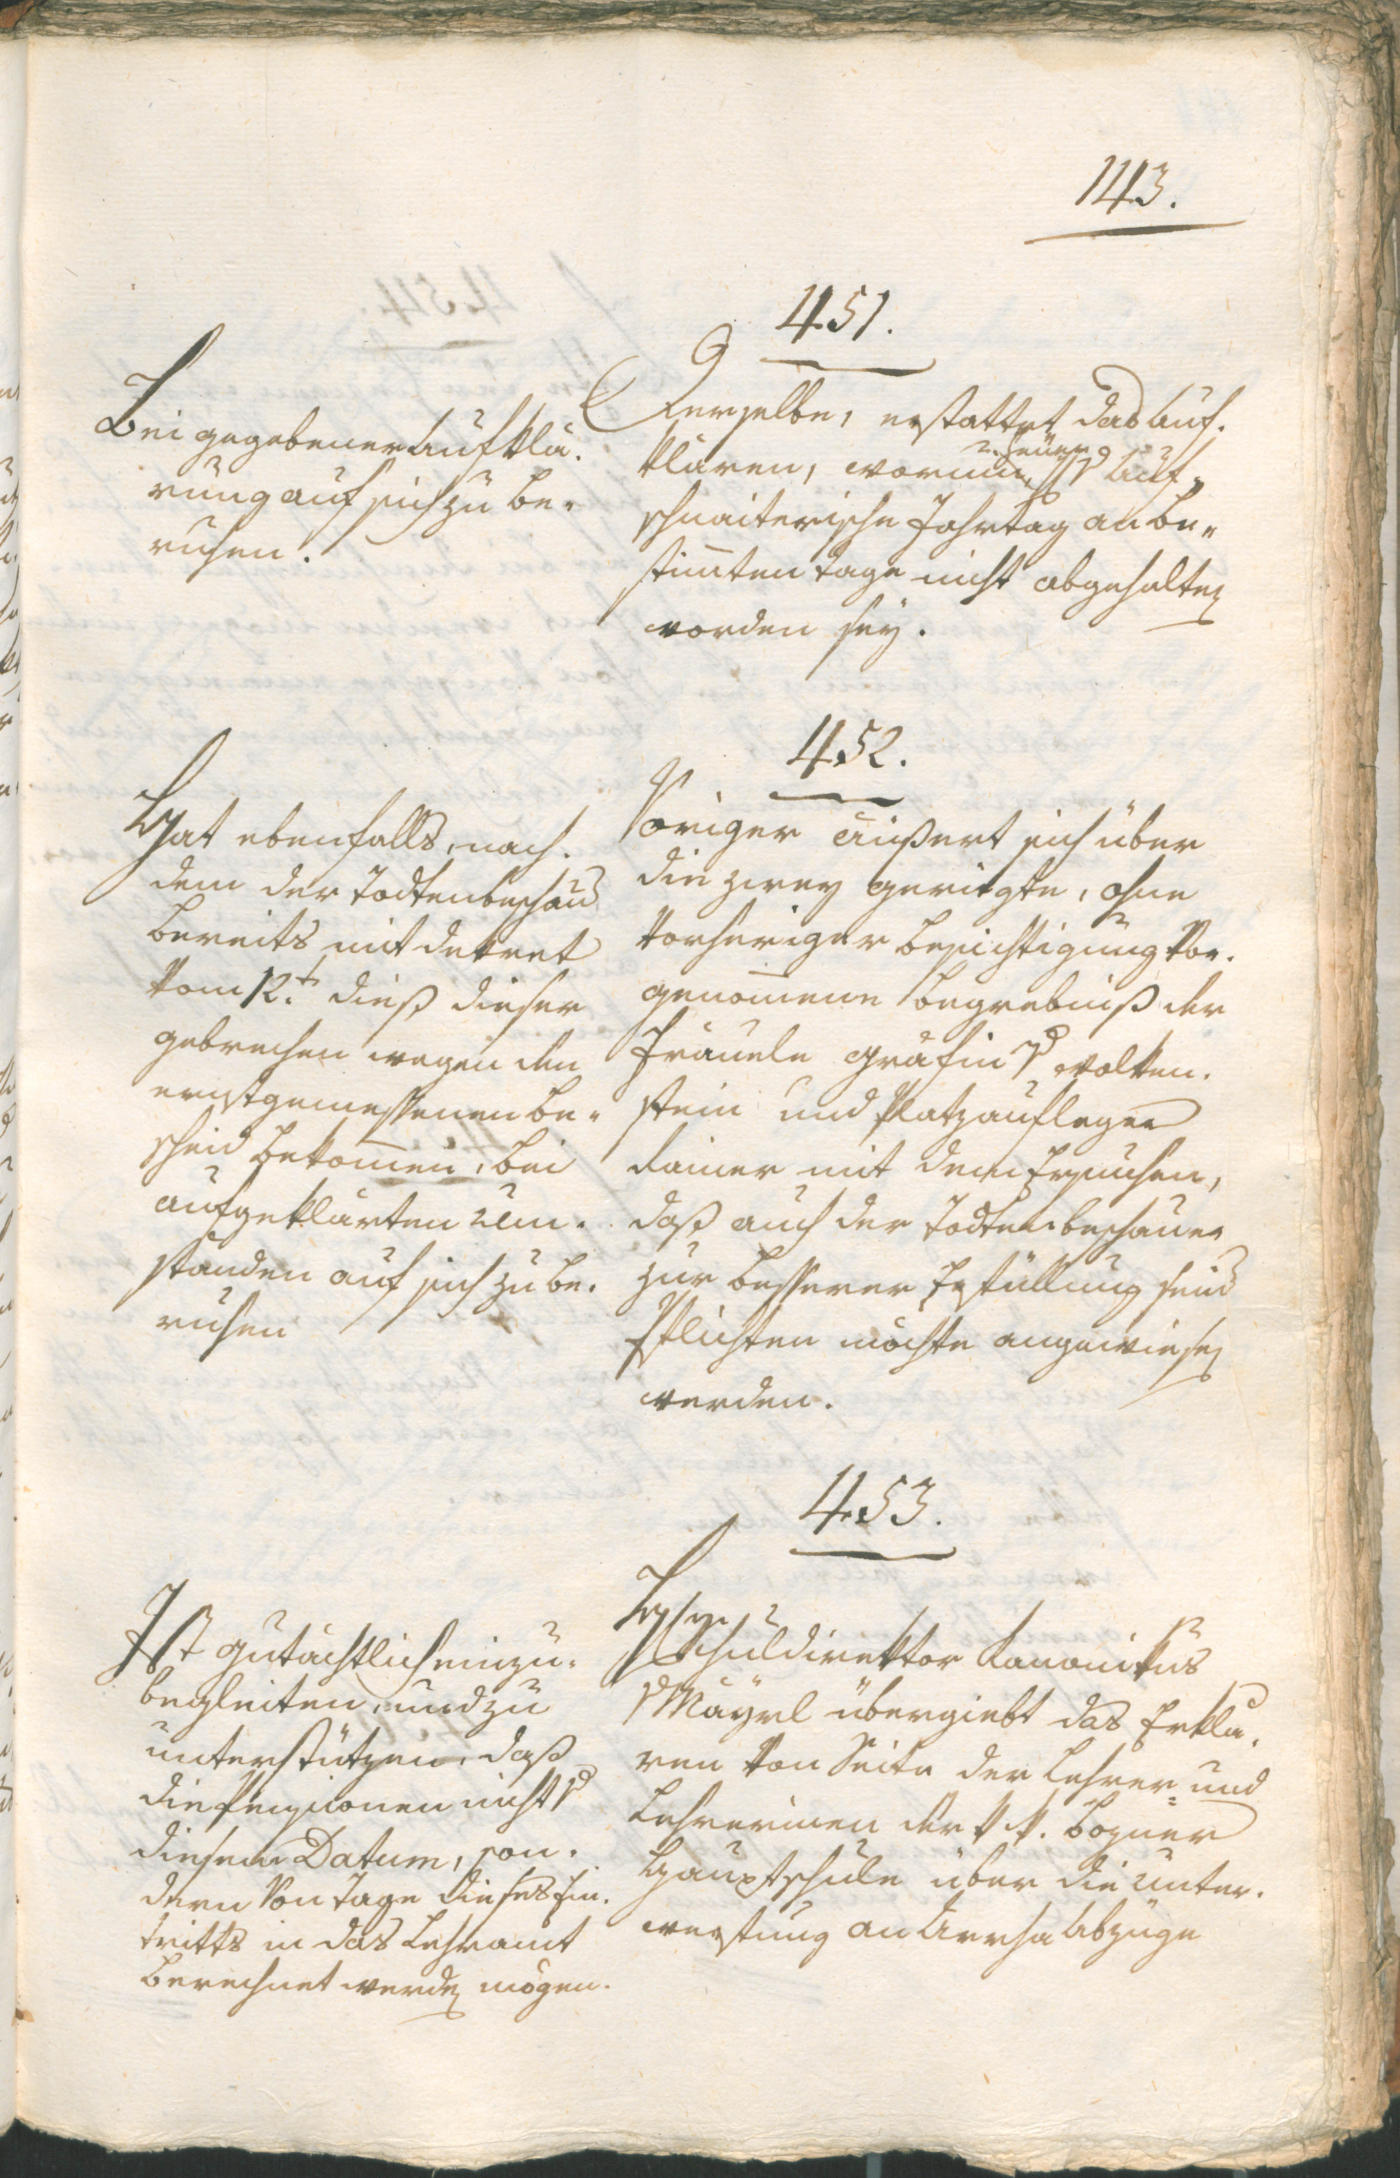 143.
451.
Derselbe, erstattet das Auf-
klären, warum heuer der Auf-
schnaiterische Jahrtag am be-
stimten Tage nicht abgehalten
worden sey.
Bei gegebener Aufklä-
rung auf sich zu be-
ruhen.
452.
Voriger äußert sich über
die zwey gerügte, ohne
vorheriger Besichtigung vor-
genomene Begräbniß der
Fräuele Gräfin v Wolken-
stein und Platzaufleger
Dainer mit dem Ersuchen,
daß auch der Todtenbeschauer
zur besserer Erfüllung seins
Pflichten möchte angewiesen
werden.
Hat ebenfalls, nach-
dem der Todtenbeschau
bereits mit Dekret
vom 12.t dieß dieser
gebrechen wegen den
ernstgemessenen Be-
scheid bekomen, bei
aufgeklärten Um-
ständen auf sich zu be-
ruhen
453.
Schuldirektor Kanonikus
v Mayrl übergiebt das Erklä-
ren von Seite der Lehrer- und
Lehrerinen der k. k. Bozner
Hauptschule über die Unter-
werfung an Arrha Abzüge
Ist gutächtlich einzu-
begleiten, und zu
unterstützen, daß
die Pensionen nicht v
diesem Datum, son-
dern von Tage dieses Ein-
tritts in das Lehramt
berechnet werden mögen.